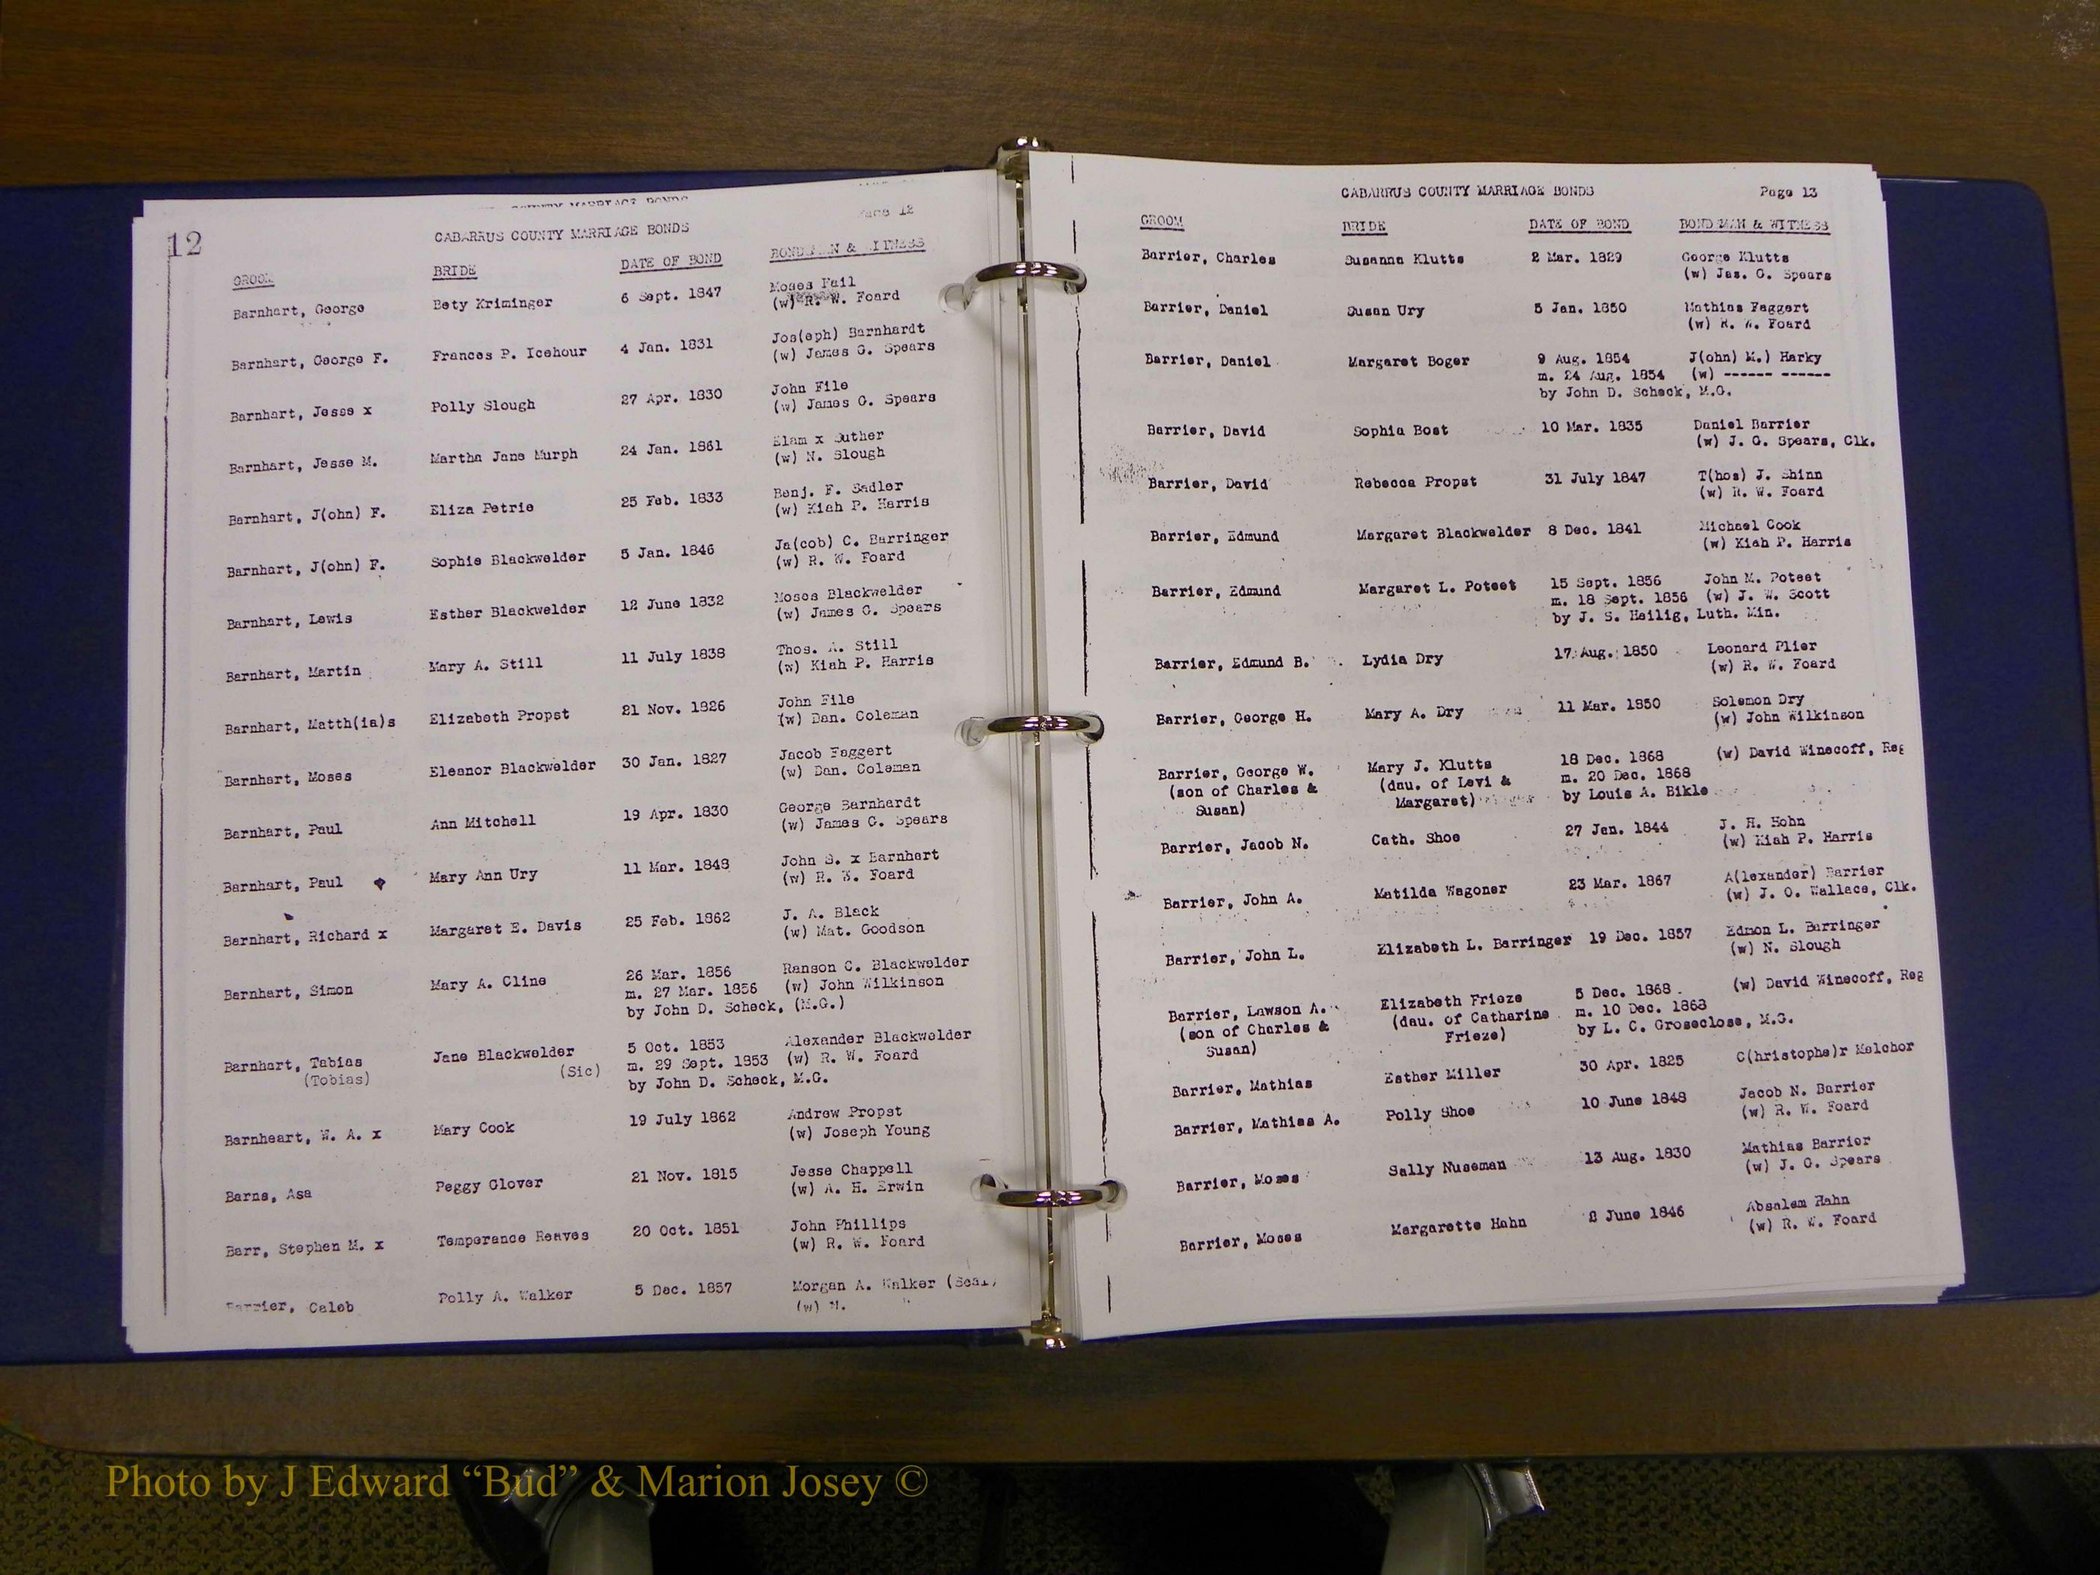 12
CABARRUS COUNTY MARRIAGE BONDS
Page 12
GROOM BRIDE DATE OF BOND BONDSMAN & WITNESS
Barnhart, George Bety Kriminger 6 Sept. 1847 Moses Fail
(w) R. W. Foard
Barnhart, George F. Frances P. Icehour 4 Jan. 1831 Jos(eph) Barnhardt
(w) James G. Spears
Barnhart, Jesse x Polly Slough 27 Apr. 1830 John File
(w) James G. Spears
Barnhart, Jesse M. Martha Jane Murph 24 Jan. 1861 Elam x Suther
(w) N. Slough
Barnhart, J(ohn) F. Eliza Petrie 25 Feb. 1833 Benj. F. Sadler
(w) Kiah P. Harris
Barnhart, J(ohn) F. Sophie Blackwelder 5 Jan. 1846 Ja(cob) C. Barringer
(w) R. W. Foard
Barnhart, Lewis Esther Blackwelder 12 June 1832 Moses Blackwelder
(w) James G. Spears
Barnhart, Martin Mary A. Still 11 July 1838 Thos. A. Still
(w) Kiah P. Harris
Barnhart, Matth(ia)s Elizabeth Propst 21 Nov. 1826 John File
(w) Dan. Coleman
Barnhart, Moses Eleanor Blackwelder 30 Jan. 1827 Jacob Faggert
(w) Dan. Coleman
Barnhart, Paul Ann Mitchell 19 Apr. 1830 George Barnhardt
(w) James G. Spears
Barnhart, Paul Mary Ann Ury 11 Mar. 1848 John S. x Barnhart
(w) R. W. Foard
Barnhart, Richard x Margaret E. Davis 25 Feb. 1862 J. A. Black
(w) Mat. Goodson
Barnhart, Simon Mary A. Cline 26 Mar. 1856 Ranson C. Blackwelder
m. 27 Mar. 1856 (w) John Wilkinson
by John D. Scheck, (M.G.)
Barnhart, Tabias Jane Blackwelder 5 Oct. 1853 Alexander Blackwelder
(Tobias) (Sic) m. 29 Sept. 1853 (w) R. W. Foard
by John D. Scheck, M.G.
Barnheart, W. A. x Mary Cook 19 July 1862 Andrew Propst
(w) Joseph Young
Barns, Asa Peggy Glover 21 Nov. 1815 Jesse Chappell
(w) A. H. Erwin
Barr, Stephen M. x Temperance Reaves 20 Oct. 1851 John Phillips
(w) R. W. Foard
Barrier, Caleb Polly A. Walker 5 Dec. 1857 Morgan A. Walker (Seal)
(w) N.
CABARRUS COUNTY MARRIAGE BONDS Page 13
GROOM BRIDE DATE OF BOND BONDSMAN & WITNESS
Barrier, Charles Susanna Klutts 2 Mar. 1829 George Klutts
(w) Jas. G. Spears
Barrier, Daniel Susan Ury 5 Jan. 1850 Mathias Faggert
(w) R. W. Foard
Barrier, Daniel Margaret Boger 9 Aug. 1854 J(ohn) M.) Harky
m. 24 Aug. 1854 (w) ------ ------
by John D. Scheck, M.G.
Barrier, David Sophia Bost 10 Mar. 1835 Daniel Barrier
(w) J. G. Spears, Clk.
Barrier, David Rebecca Propst 31 July 1847 T(hos) J. Shinn
(w) R. W. Foard
Barrier, Edmund Margaret Blackwelder 8 Dec. 1841 Michael Cook
(w) Kiah P. Harris
Barrier, Edmund Margaret L. Poteet 15 Sept. 1856 John M. Poteet
m. 18 Sept. 1856 (w) J. W. Scott
by J. S. Heilig, Luth. Min.
Barrier, Edmund B. Lydia Dry 17 Aug. 1850 Leonard Plier
(w) R. W. Foard
Barrier, George H. Mary A. Dry 11 Mar. 1850 Solemon Dry
(w) John Wilkinson
Barrier, George W. Mary J. Klutts 18 Dec. 1868 (w) David Winecoff, Reg
(son of Charles & (dau. of Levi & m. 20 Dec. 1868
Susan) Margaret) by Louis A. Bikle
Barrier, Jacob N. Cath. Shoe 27 Jan. 1844 J. H. Hohn
(w) Kiah P. Harris
Barrier, John A. Matilda Wagoner 23 Mar. 1867 A(lexander) Barrier
(w) J. O. Wallace, Clk.
Barrier, John L. Elizabeth L. Barringer 19 Dec. 1857 Edmon L. Barringer
(w) N. Slough
Barrier, Lawson A. Elizabeth Frieze 5 Dec. 1868 (w) David Winecoff, Reg
(son of Charles & (dau. of Catharine m. 10 Dec. 1868
Susan) Frieze) by L. C. Groseclose, M.G.
Barrier, Mathias Esther Miller 30 Apr. 1825 C(hristophe)r Melchor
Barrier, Mathias A. Polly Shoe 10 June 1848 Jacob N. Barrier
(w) R. W. Foard
Barrier, Moses Sally Nuseman 13 Aug. 1830 Mathias Barrier
(w) J. G. Spears
Barrier, Moses Margarette Hahn 2 June 1846 Absalem Hahn
(w) R. W. Foard
Photo by J Edward “Bud” & Marion Josey ©